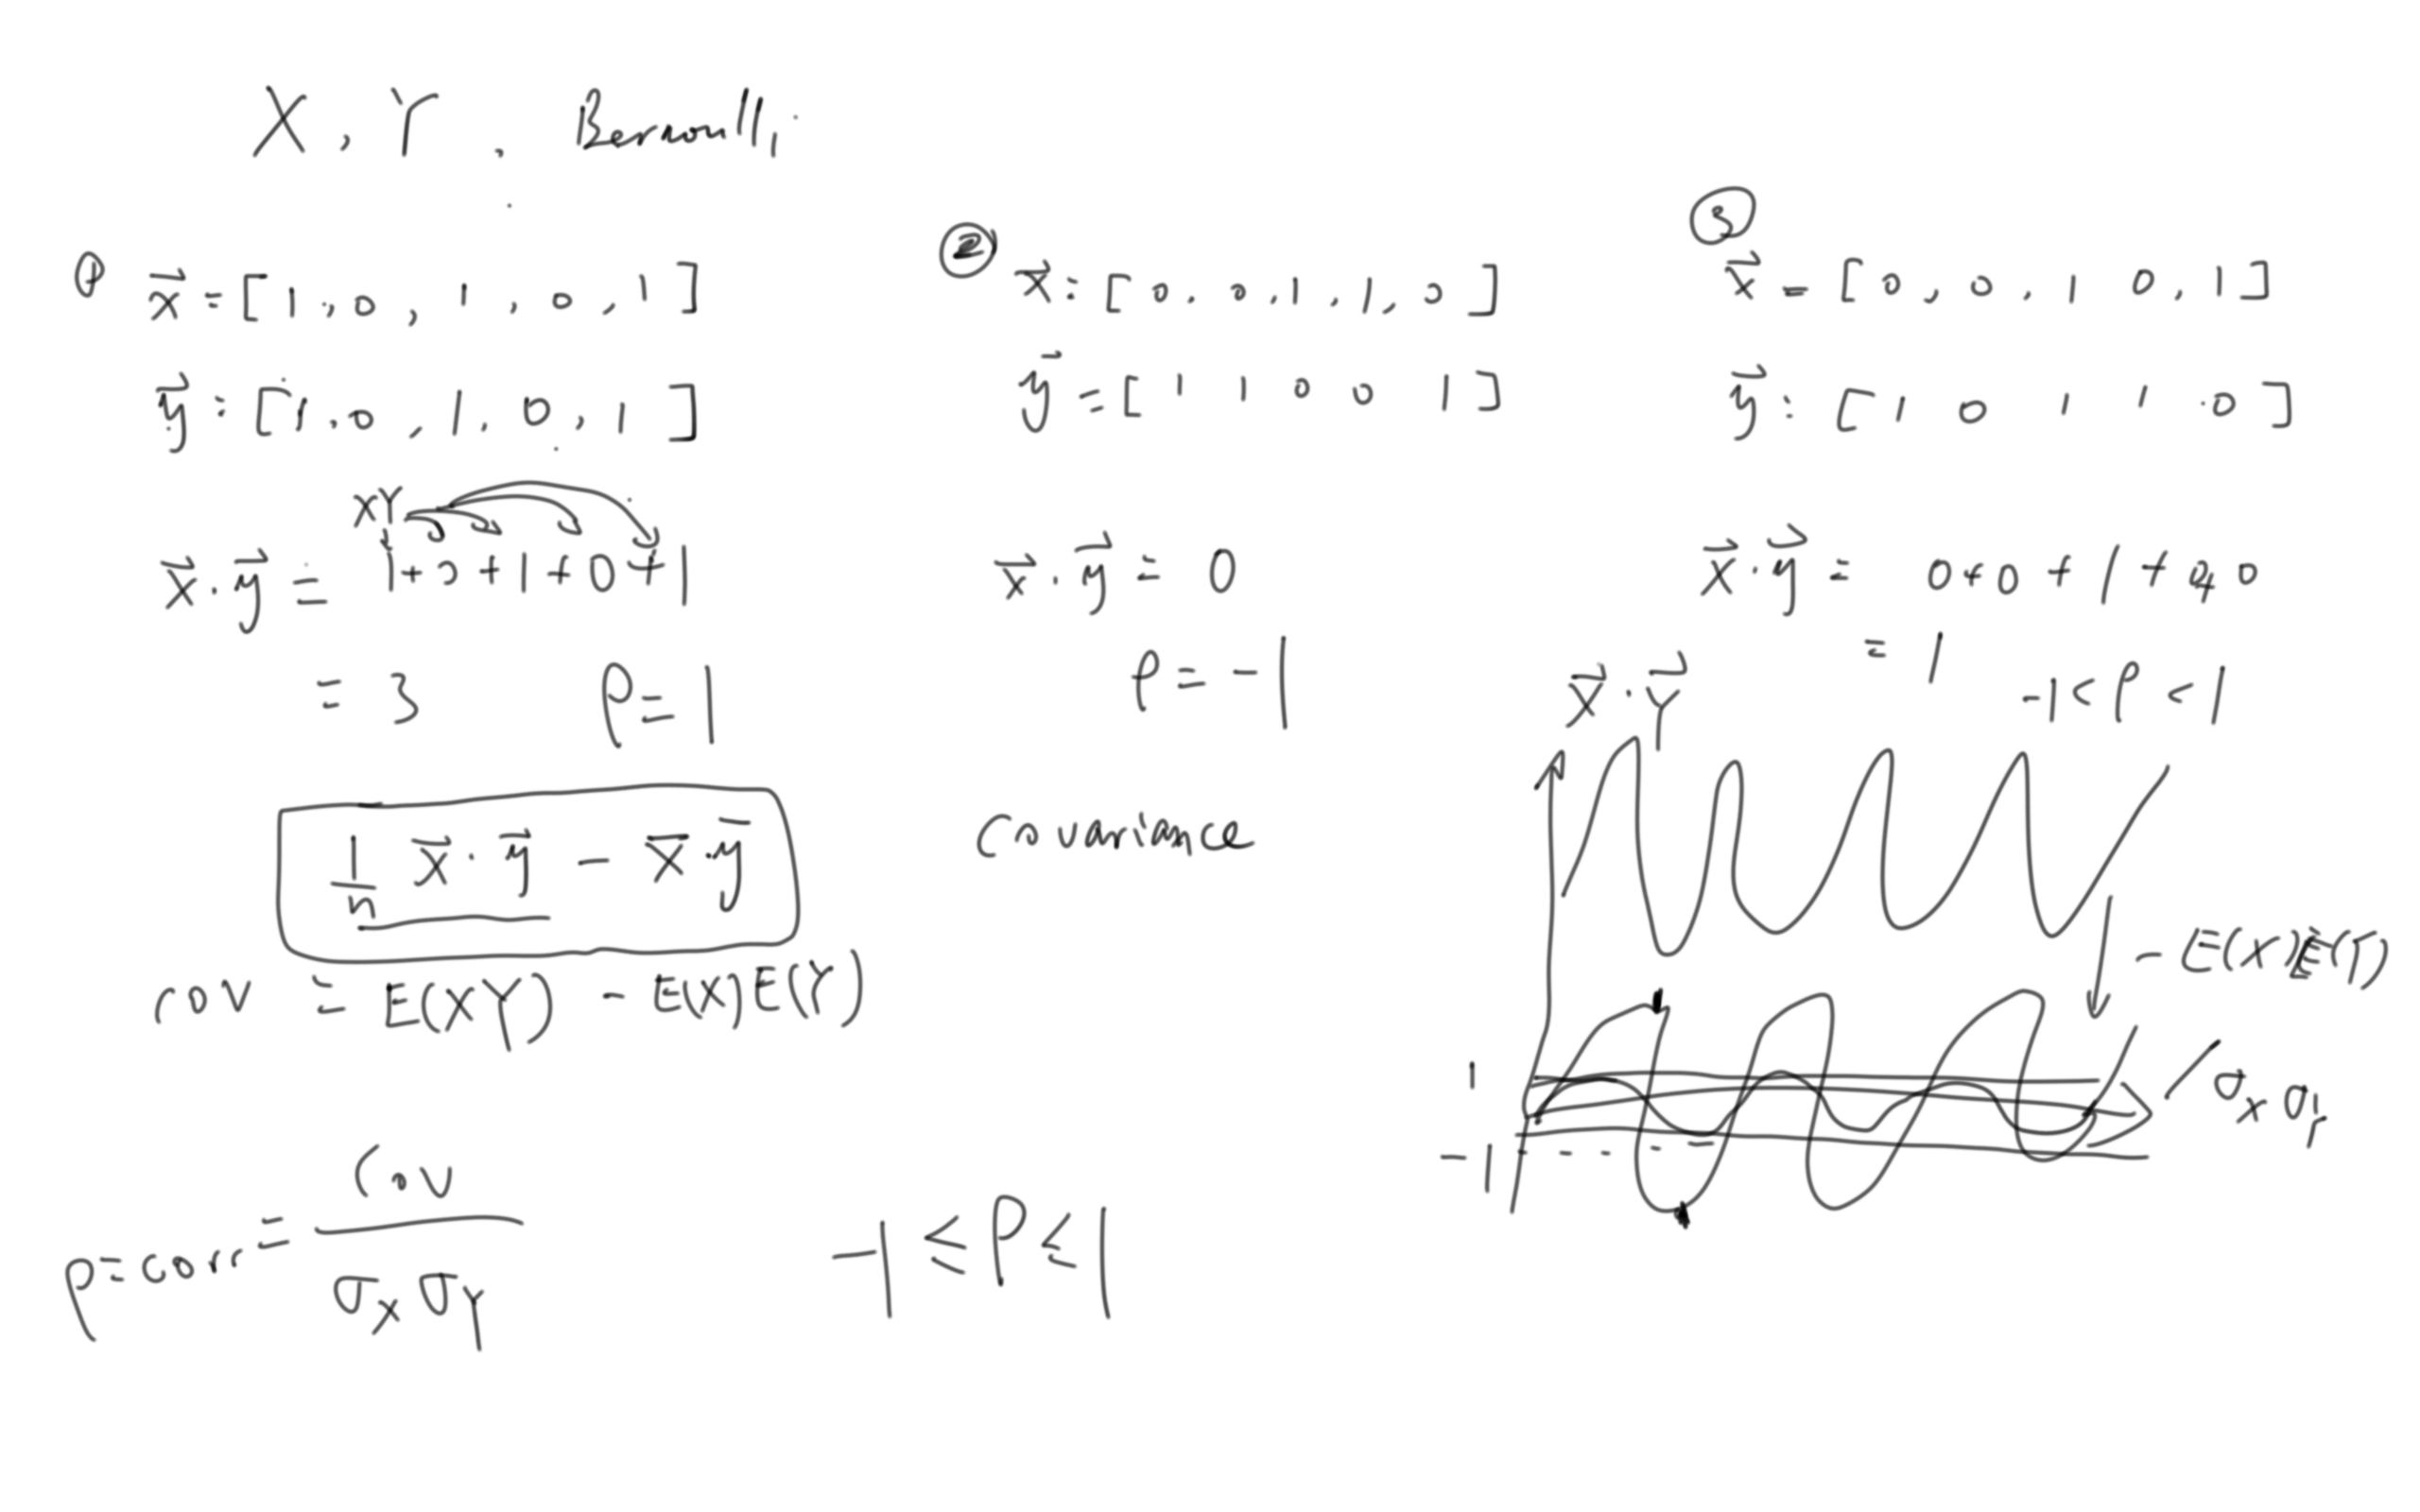 X, Y, Bernoulli
①
x⃗ = [1, 0, 1, 0, 1]
y⃗ = [1, 0, 1, 0, 1]
XY
x⃗ · y⃗ = 1 + 0 + 1 + 0 + 1
= 3 ρ = 1
1/n x⃗ · y⃗ − x̄ · ȳ
cov = E(XY) − E(X)E(Y)
ρ = corr = Cov / σ_X σ_Y
−1 ≤ ρ ≤ 1
②
x⃗ = [0, 0, 1, 1, 0]
y⃗ = [1 1 0 0 1]
x⃗ · y⃗ = 0
ρ = −1
covariance
③
x⃗ = [0, 0, 1 0, 1]
y⃗ = [1 0 1 1 0]
x⃗ · y⃗ = 0 + 0 + 1 + 0
= 1
−1 < ρ < 1
X⃗ · Y⃗
− E(X)E(Y)
1
−1
/ σ_X σ_Y